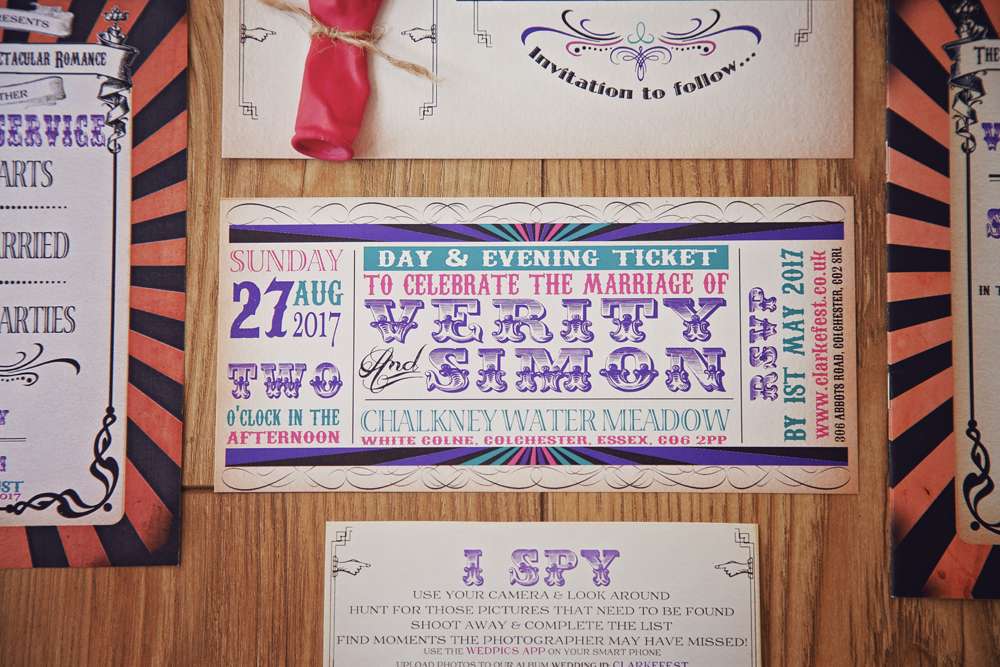 PRESENTS
ROMANCE
SERVICE
ARRIED
ARTIES
2017
Invitation to follow...
SUNDAY
27 AUG
2017
TWO
O'CLOCK IN THE
AFTERNOON
DAY & EVENING TICKET
TO CELEBRATE THE MARRIAGE OF
VERITY
And SIMON
CHALKNEY WATER MEADOW
WHITE COLNE, COLCHESTER, ESSEX, CO6 2PP
RSVP
BY 1ST MAY 2017
www.clarkefest.co.uk
306 ABBOTS ROAD, COLCHESTER, CO2 8RL
I SPY
USE YOUR CAMERA & LOOK AROUND
HUNT FOR THOSE PICTURES THAT NEED TO BE FOUND
SHOOT AWAY & COMPLETE THE LIST
FIND MOMENTS THE PHOTOGRAPHER MAY HAVE MISSED!
USE THE WEDPICS APP ON YOUR SMART PHONE
UPLOAD PHOTOS TO OUR ALBUM WEDDING ID: CLARKEFEST
THE
IN T